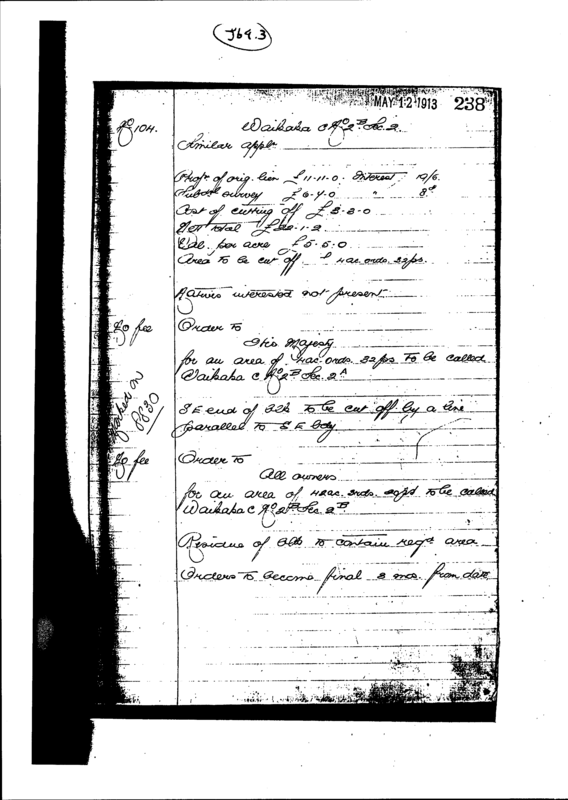 J64.3
MAY 12 1913 238
No 104. Waikaka C No 2B Sec. 2.
Similar appln
Propn of orig. lien £11-11-0 Interest 10/6
Subdl survey £6-4-0 " 8d
Cost of cutting off £3-3-0
Net total
Val. per acre £5-5-0
Area to be cut off 4ac. 0rds. 32ps.
Natives interested not present
No fee Order to
His Majesty
for an area of 4ac. 0rds. 32ps to be called
Waikaka C No 2B Sec. 2A
S E end of Blk to be cut off by a line
parallel to S E bdy
on
8830
No fee Order to
All owners
for an area of 42ac. 3rds. to be called
Waikaka C No 2B Sec. 2B
Residue of Blk to contain reqd area
Orders to become final 3 mos. from date